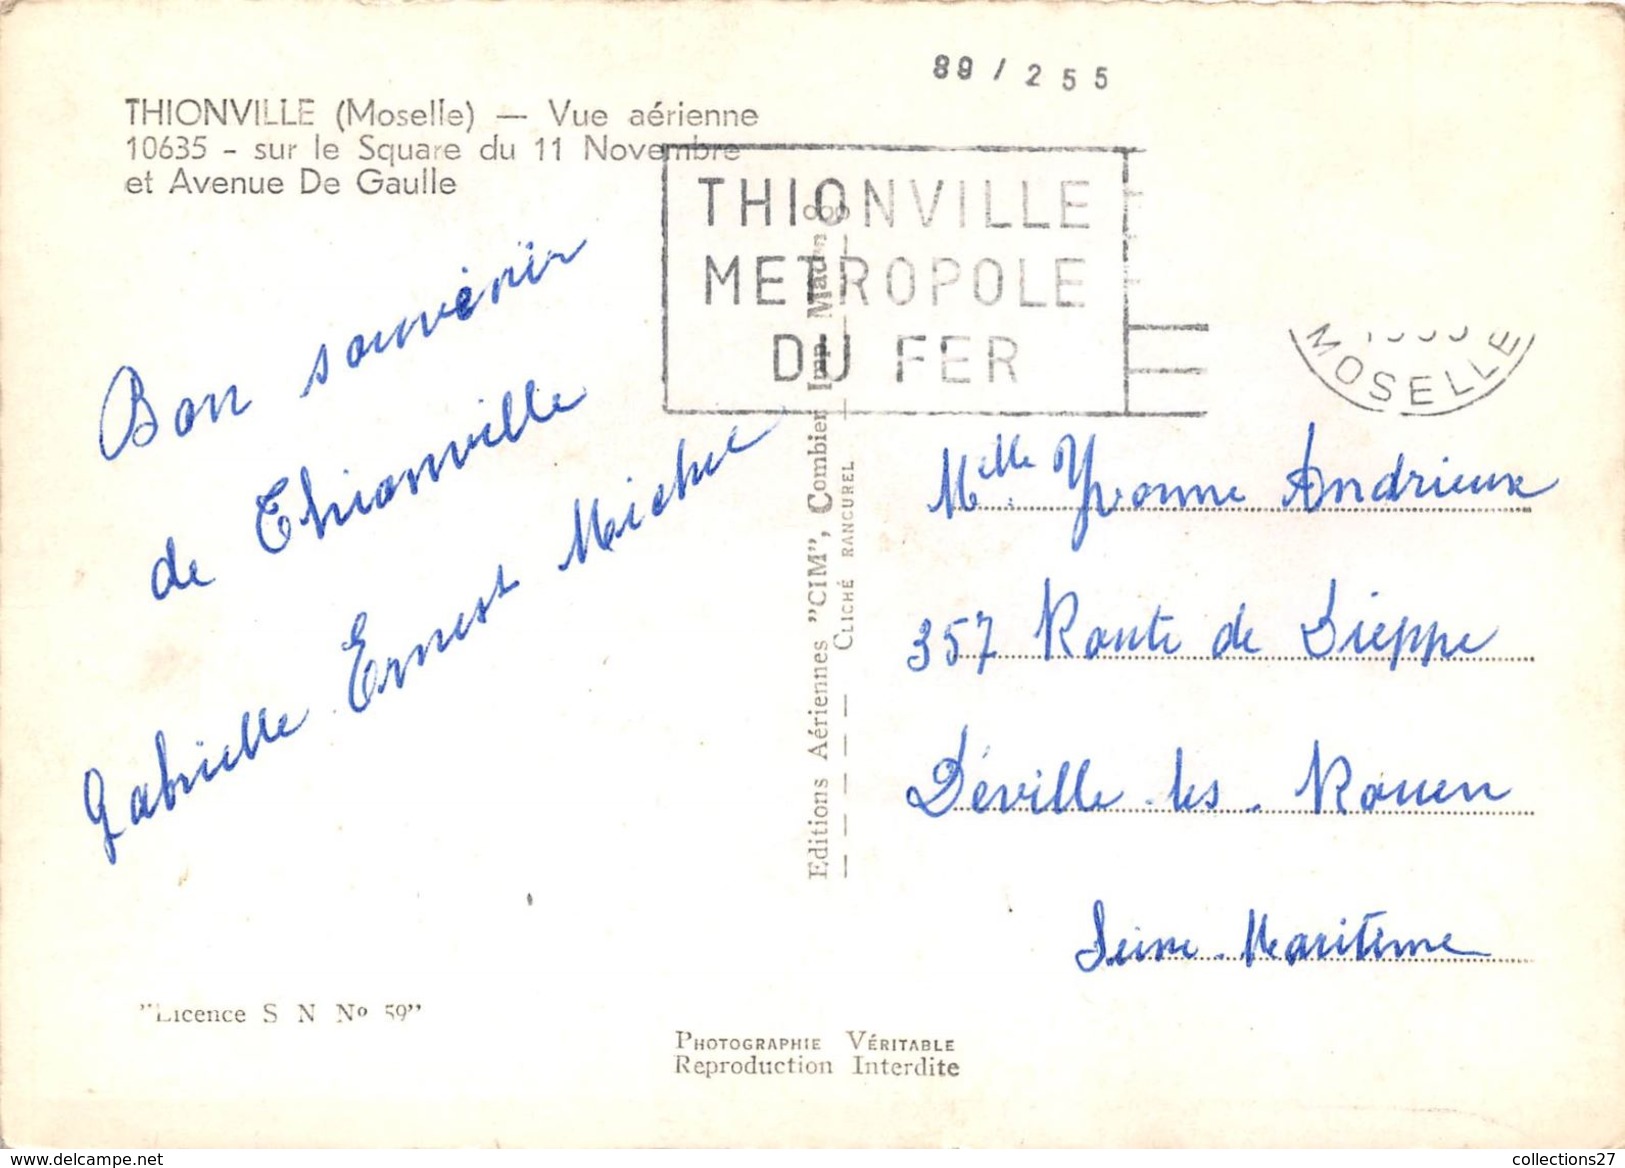 89 / 255
THIONVILLE (Moselle) — Vue aérienne
10635 - sur le Square du 11 Novembre
et Avenue De Gaulle
THIONVILLE
METROPOLE
DU FER
MOSELLE
Bon souvenir
de Thionville
Gabrielle Ernest Michel
Editions Aériennes "CIM", Combier Imp. Macon
CLICHÉ RANCUREL
Melle Yvonne Andrieux
357 Route de Dieppe
Déville-les-Rouen
Seine-Maritime
"Licence S N No 59"
PHOTOGRAPHIE VÉRITABLE
Reproduction Interdite
delcampe.net
collections27